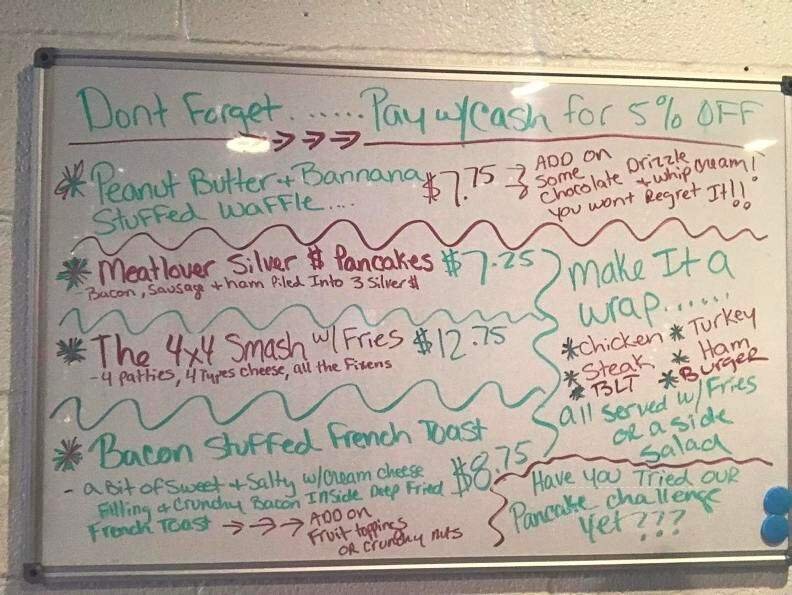 Dont Forget....... Pay w/cash for 5% OFF
→→→→
* Peanut Butter + Bannana $7.75
Stuffed waffle....
ADD ON
Some
Chocolate Drizzle
+ whip cream!
you wont Regret It!!
* Meatlover Silver $ Pancakes $7.25
- Bacon, Sausage + ham Piled Into 3 Silver $
* The 4x4 Smash w/ Fries $12.75
- 4 patties, 4 Types cheese, all the Fixens
* Bacon Stuffed French Toast
$8.75
- a Bit of Sweet + Salty w/cream cheese
Filling + Crunchy Bacon Inside Deep Fried
French Toast →→→ ADD ON
Fruit toppings
OR Crunchy nuts
make It a
wrap......
* Chicken * Turkey
* Steak * Ham
* BLT * Burger
all served w/ Fries
OR a side
Salad
Have you Tried OUR
Pancake challenge
yet???